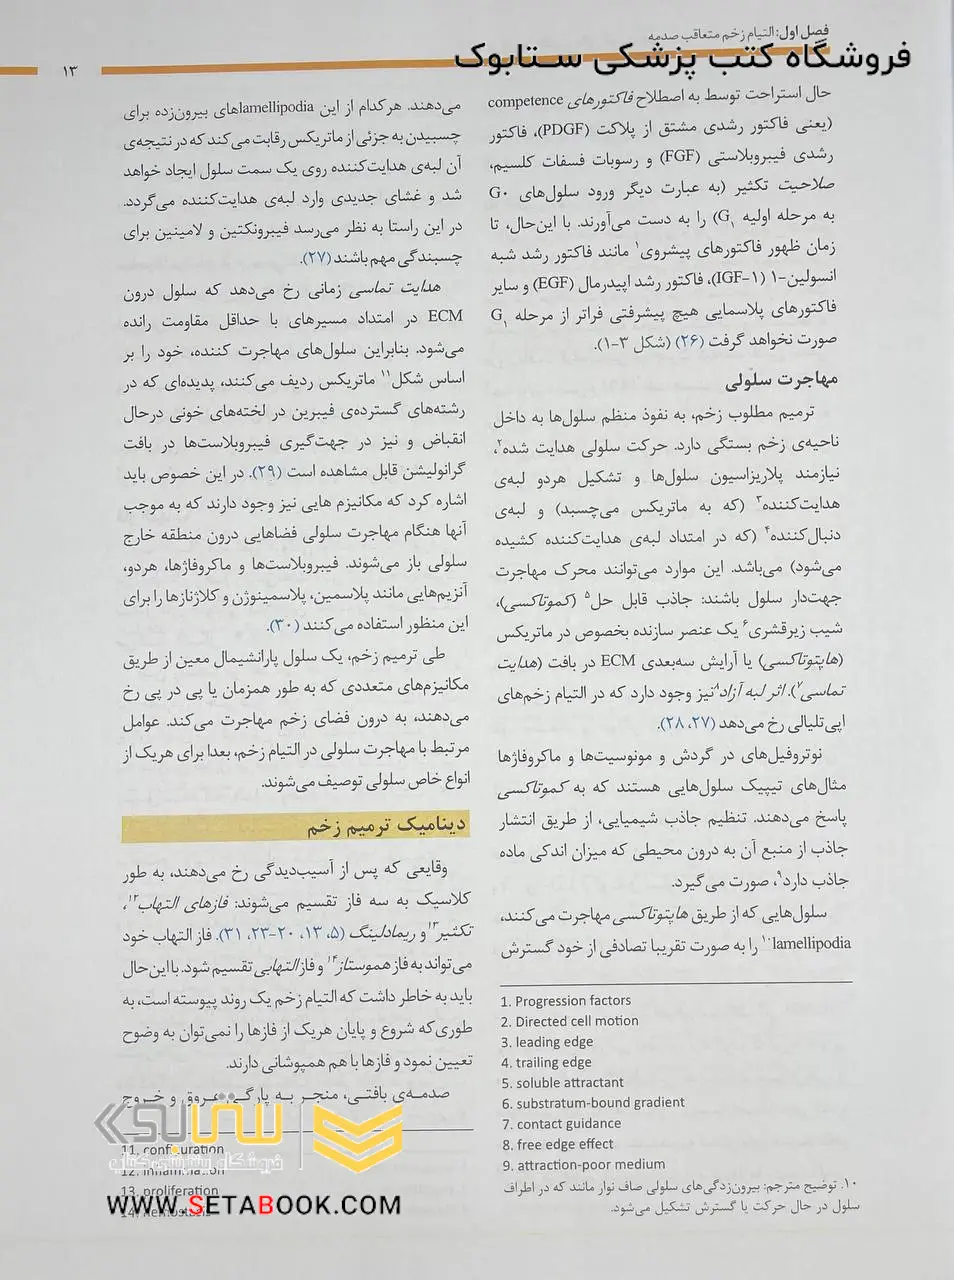 فصل اول: التیام زخم متعاقب صدمه
فروشگاه کتب پزشکی ستابوک
۱۳
حال استراحت توسط به اصطلاح فاکتورهای competence
(یعنی فاکتور رشدی مشتق از پلاکت (PDGF)، فاکتور
رشدی فیبروبلاستی (FGF) و رسوبات فسفات کلسیم،
صلاحیت تکثیر (به عبارت دیگر ورود سلول‌های G۰
به مرحله اولیه G۱) را به دست می‌آورند. با این‌حال، تا
زمان ظهور فاکتورهای پیشروی۱ مانند فاکتور رشد شبه
انسولین-۱ (IGF-۱)، فاکتور رشد اپیدرمال (EGF) و سایر
فاکتورهای پلاسمایی هیچ پیشرفتی فراتر از مرحله G۱
صورت نخواهد گرفت (۲۶) (شکل ۳-۱).
مهاجرت سلولی
ترمیم مطلوب زخم، به نفوذ منظم سلول‌ها به داخل
ناحیه‌ی زخم بستگی دارد. حرکت سلولی هدایت شده۲،
نیازمند پلاریزاسیون سلول‌ها و تشکیل هردو لبه‌ی
هدایت‌کننده۳ (که به ماتریکس می‌چسبد) و لبه‌ی
دنبال‌کننده۴ (که در امتداد لبه‌ی هدایت‌کننده کشیده
می‌شود) می‌باشد. این موارد می‌توانند محرک مهاجرت
جهت‌دار سلول باشند: جاذب قابل حل۵ (کموتاکسی)،
شیب زیرقشری۶ یک عنصر سازنده بخصوص در ماتریکس
(هاپتوتاکسی) یا آرایش سه‌بعدی ECM در بافت (هدایت
تماسی۷). اثر لبه آزاد۸ نیز وجود دارد که در التیام زخم‌های
اپی‌تلیالی رخ می‌دهد (۲۷، ۲۸).
نوتروفیل‌های در گردش و مونوسیت‌ها و ماکروفاژها
مثال‌های تیپیک سلول‌هایی هستند که به کموتاکسی
پاسخ می‌دهند. تنظیم جاذب شیمیایی، از طریق انتشار
جاذب از منبع آن به درون محیطی که میزان اندکی ماده
جاذب دارد۹، صورت می‌گیرد.
سلول‌هایی که از طریق هاپتوتاکسی مهاجرت می‌کنند،
lamellipodia۱۰ را به صورت تقریبا تصادفی از خود گسترش
1. Progression factors
2. Directed cell motion
3. leading edge
4. trailing edge
5. soluble attractant
6. substratum-bound gradient
7. contact guidance
8. free edge effect
9. attraction-poor medium
۱۰. توضیح مترجم: بیرون‌زدگی‌های سلولی صاف نوار مانند که در اطراف
سلول در حال حرکت یا گسترش تشکیل می‌شود.
می‌دهند. هرکدام از این lamellipodiaهای بیرون‌زده برای
چسبیدن به جزئی از ماتریکس رقابت می‌کند که در نتیجه‌ی
آن لبه‌ی هدایت‌کننده روی یک سمت سلول ایجاد خواهد
شد و غشای جدیدی وارد لبه‌ی هدایت‌کننده می‌گردد.
در این راستا به نظر می‌رسد فیبرونکتین و لامینین برای
چسبندگی مهم باشند (۲۷).
هدایت تماسی زمانی رخ می‌دهد که سلول درون
ECM در امتداد مسیرهای با حداقل مقاومت رانده
می‌شود. بنابراین سلول‌های مهاجرت کننده، خود را بر
اساس شکل۱۱ ماتریکس ردیف می‌کنند، پدیده‌ای که در
رشته‌های گسترده‌ی فیبرین در لخته‌های خونی درحال
انقباض و نیز در جهت‌گیری فیبروبلاست‌ها در بافت
گرانولیشن قابل مشاهده است (۲۹). در این خصوص باید
اشاره کرد که مکانیزم هایی نیز وجود دارند که به موجب
آنها هنگام مهاجرت سلولی فضاهایی درون منطقه خارج
سلولی باز می‌شوند. فیبروبلاست‌ها و ماکروفاژها، هردو،
آنزیم‌هایی مانند پلاسمین، پلاسمینوژن و کلاژنازها را برای
این منظور استفاده می‌کنند (۳۰).
طی ترمیم زخم، یک سلول پارانشیمال معین از طریق
مکانیزم‌های متعددی که به طور همزمان یا پی در پی رخ
می‌دهند، به درون فضای زخم مهاجرت می‌کند. عوامل
مرتبط با مهاجرت سلولی در التیام زخم، بعدا برای هریک از
انواع خاص سلولی توصیف می‌شوند.
دینامیک ترمیم زخم
وقایعی که پس از آسیب‌دیدگی رخ می‌دهند، به طور
کلاسیک به سه فاز تقسیم می‌شوند: فازهای التهاب۱۲،
تکثیر۱۳ و ریمادلینگ (۵، ۱۳، ۲۰-۲۳، ۳۱). فاز التهاب خود
می‌تواند به فاز هموستاز۱۴ و فاز التهابی تقسیم شود. با این‌حال
باید به خاطر داشت که التیام زخم یک روند پیوسته است، به
طوری‌که شروع و پایان هریک از فازها را نمی‌توان به وضوح
تعیین نمود و فازها با هم همپوشانی دارند.
صدمه‌ی بافتی، منجر به پارگی عروق و خروج
11. configuration
12. inflammation
13. proliferation
14. hemostasis
ستابوک
فروشگاه اینترنتی کتاب
WWW.SETABOOK.COM